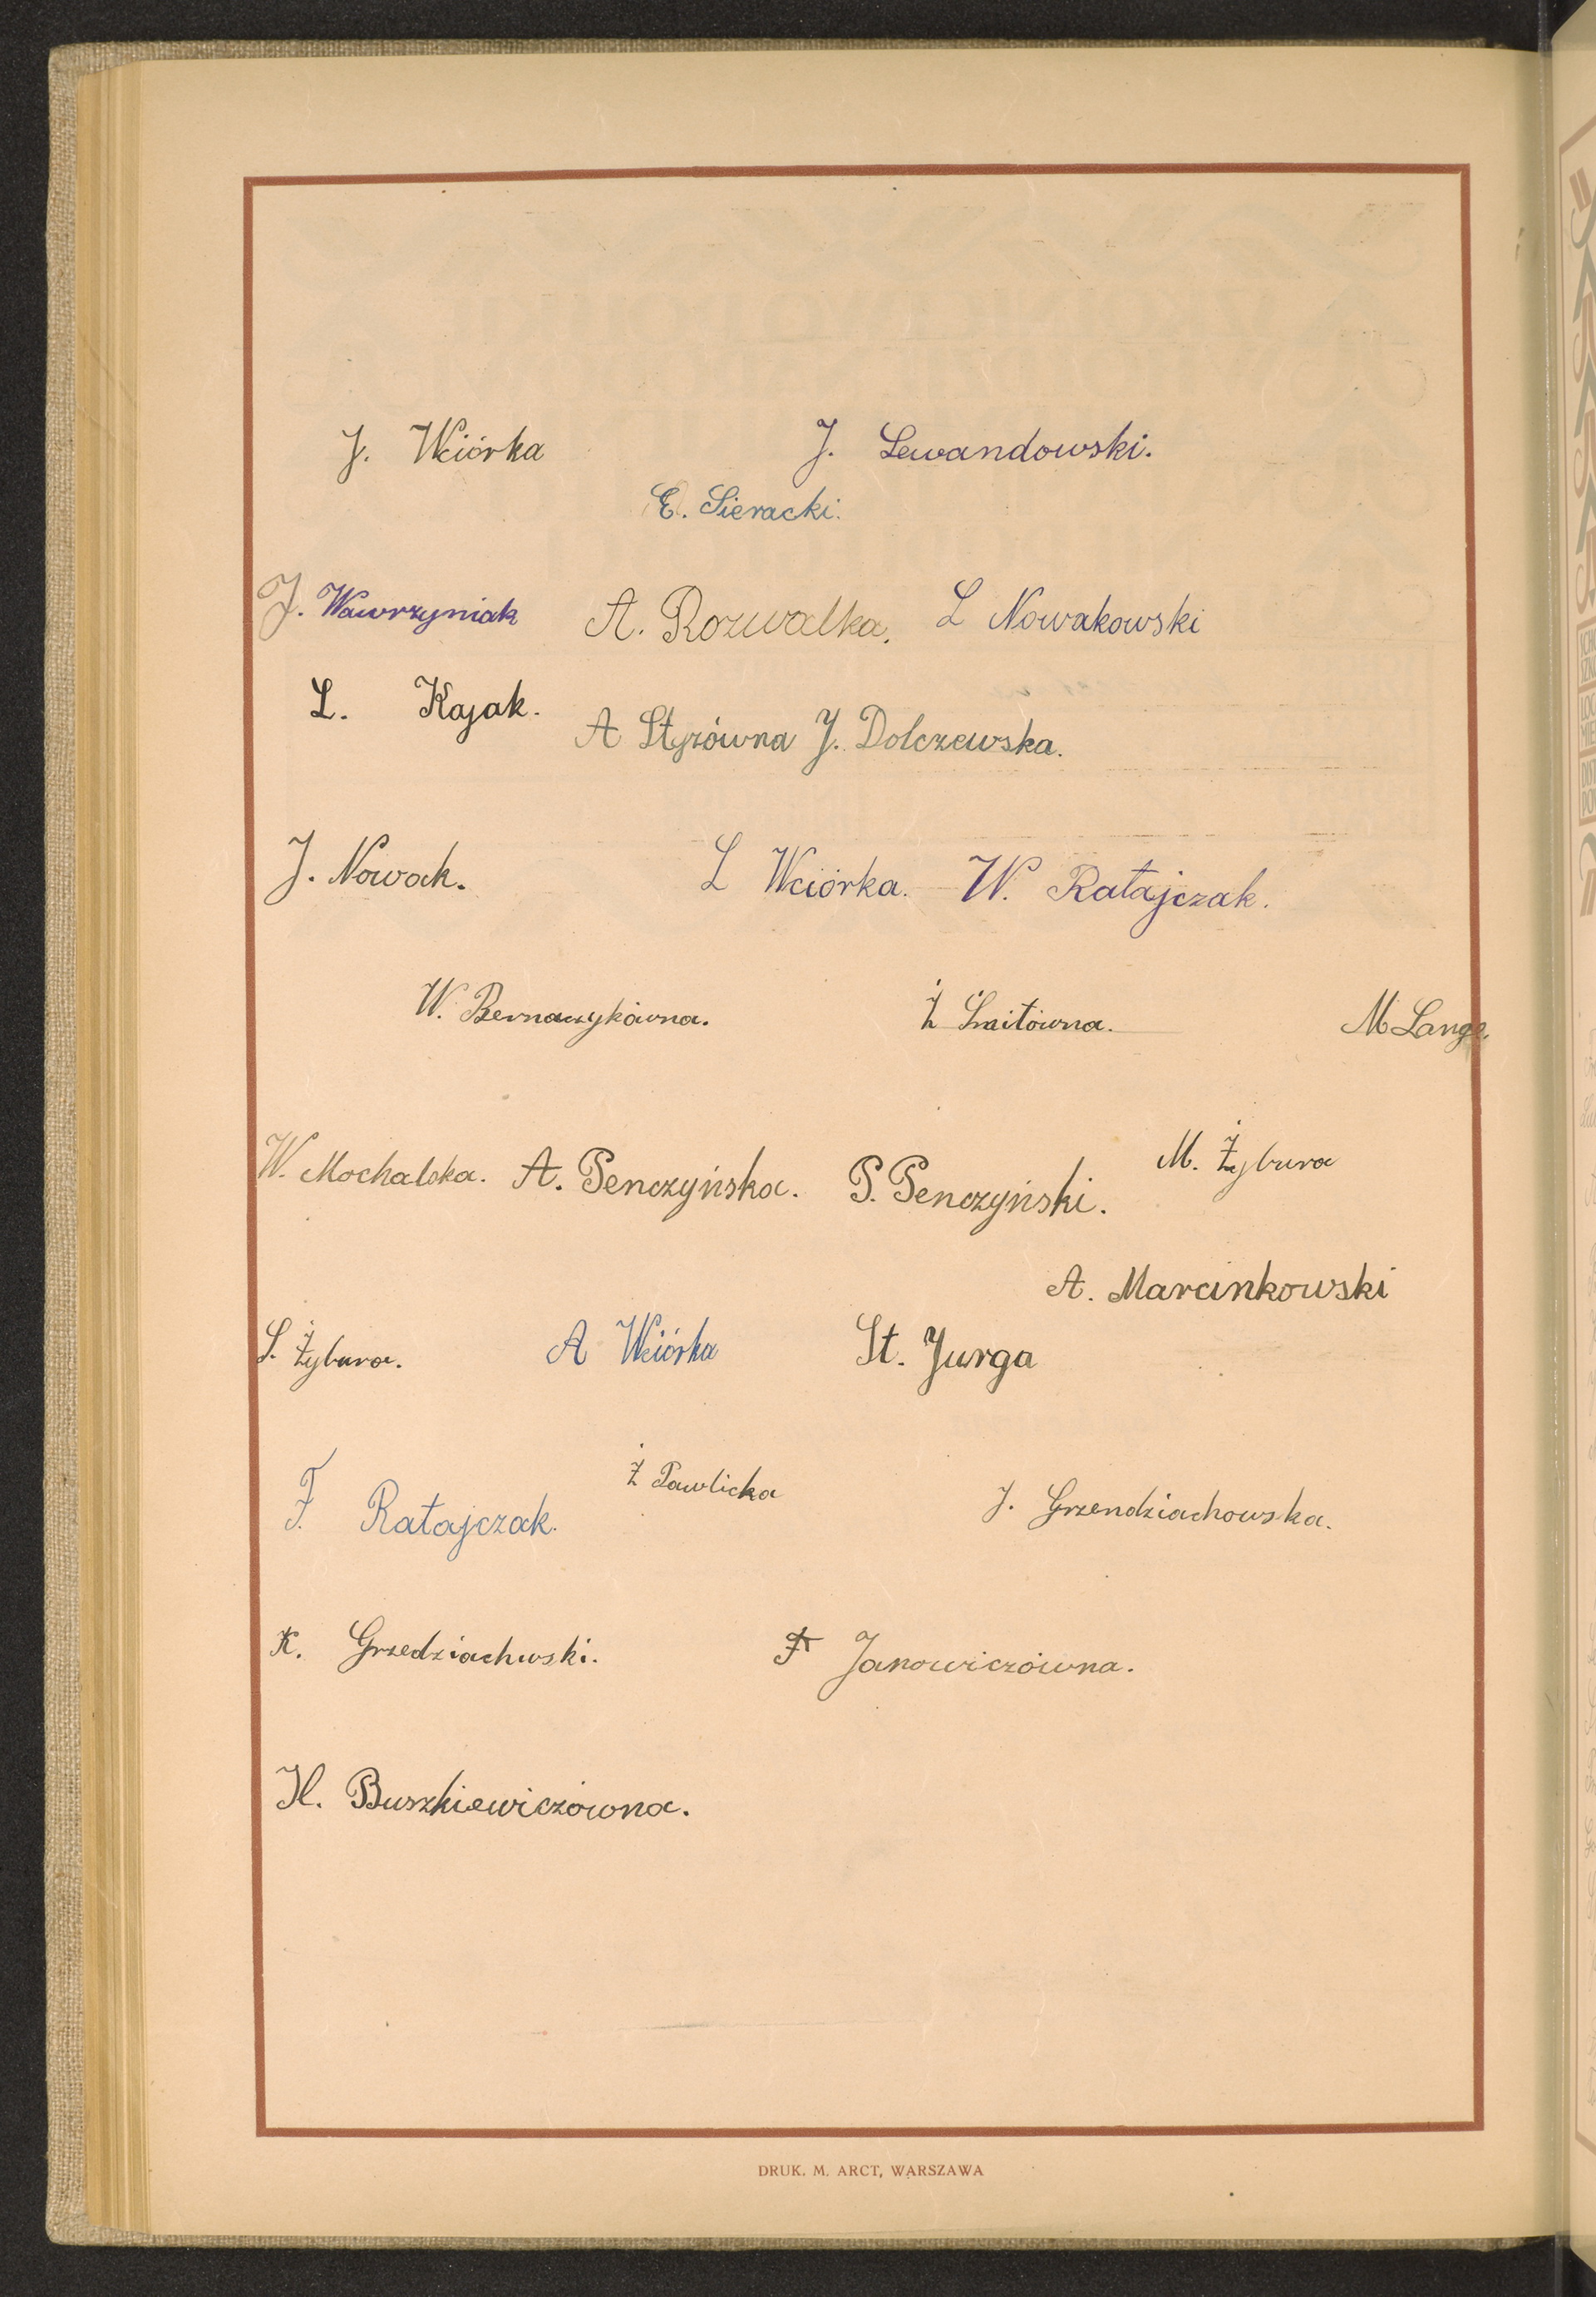 J. Wciórka J. Lewandowski.
E. Sieracki.
J. Wawrzyniak A. Rozwalka. L Nowakowski
L. Kajak.
A Styzówna J. Dolczewska.
J. Nowak. L Wciórka. W. Ratajczak.
W. Bernaczykówna. Ż Śmitówna. M Lange.
W. Mochalska. A. Penczyńska. P. Penczyński. M. Żybura
A. Marcinkowski
S. Żybura. A Wciórka St. Jurga
F. Ratajczak. Ż Pawlicka J. Grzendziachowska.
K. Grzedziachwski. F Janowiczówna.
H. Buszkiewiczówna.
DRUK. M. ARCT, WARSZAWA